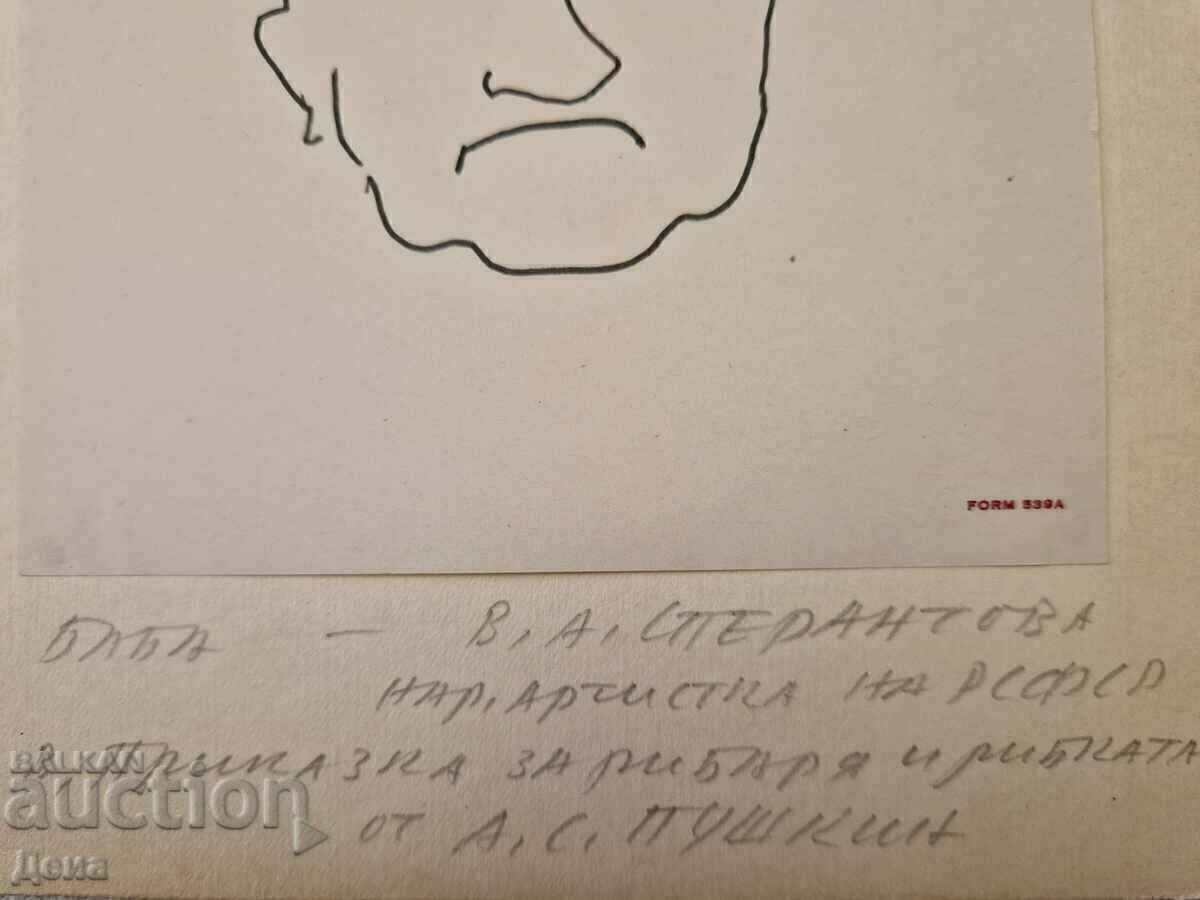 FORM 539A
БАБА — В. А. СПЕРАНТОВА
НАР. АРТИСТКА НА РСФСР
В "ПРИКАЗКА ЗА РИБАРЯ И РИБКАТА
ОТ А. С. ПУШКИН
BALKAN
auction
Дена